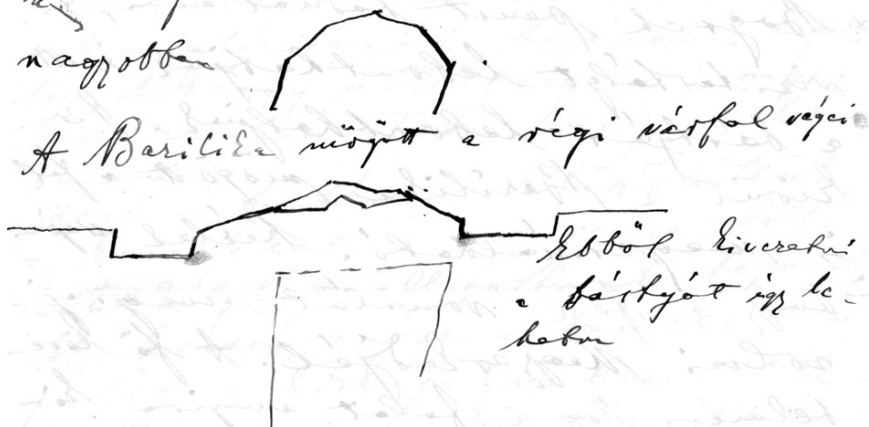 nagyobban
A Bazilika mögött a régi várfal végei
Ebből kivezetni
a bástyát így le-
hetne